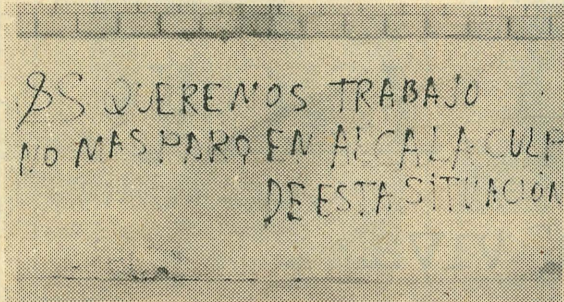 SS QUEREMOS TRABAJO
NO MAS PARO EN ALCALA CULP
DE ESTA SITUACION